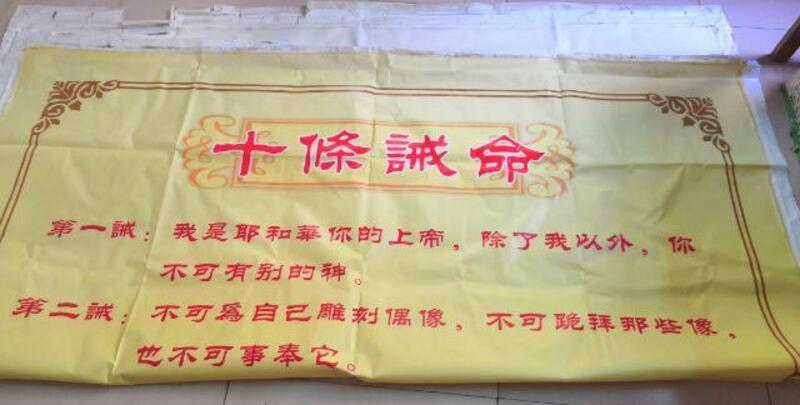 十條誡命
第一誡：我是耶和華你的上帝，除了我以外，你
不可有别的神。
第二誡：不可爲自己雕刻偶像，不可跪拜那些像，
也不可事奉它。